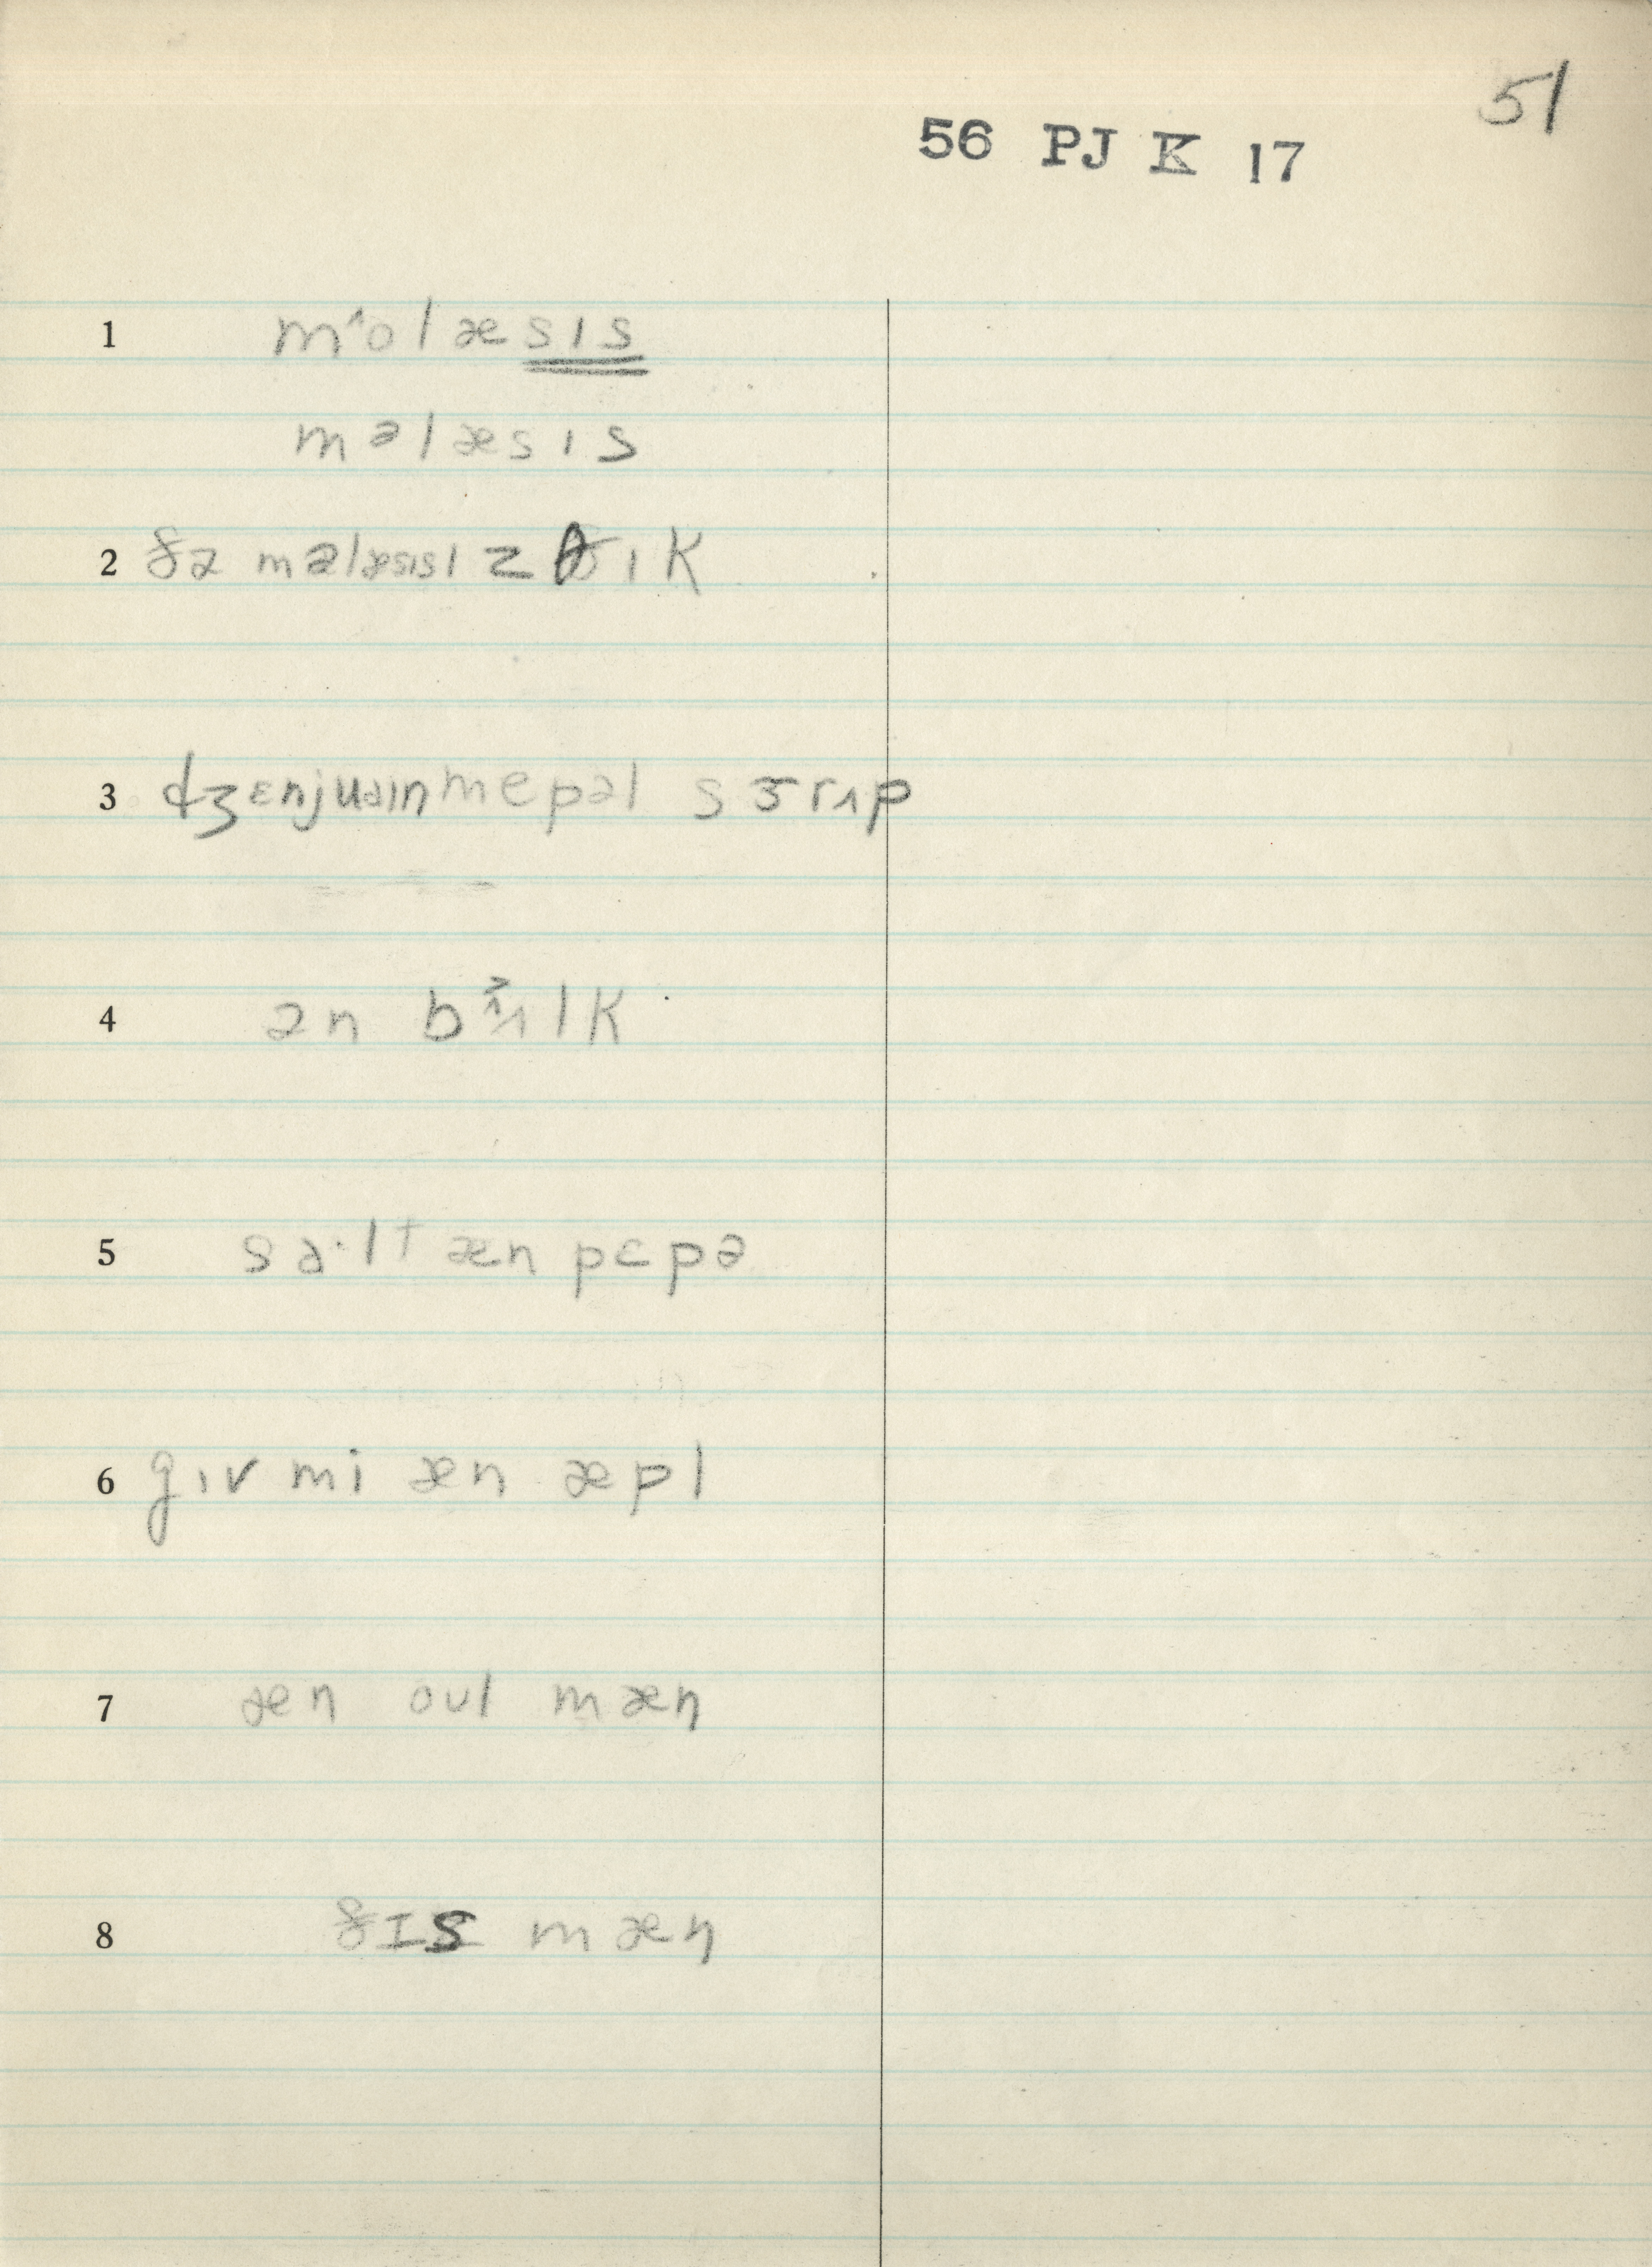 51
56 PJ K 17
1 mˆolæsɪs
məlæsɪs
2 ðə məlæsɪsɪz θɪk
3 dʒɛnjuəɪnmepəl sɜrʌp
4 ən bʌlk
5 sa·lt æn pɛpə
6 gɪv mi æn æpl
7 æn oul mæn
8 ðɪs mæn